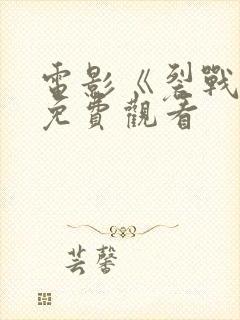 電影《裂戰
免費觀看
芸馨